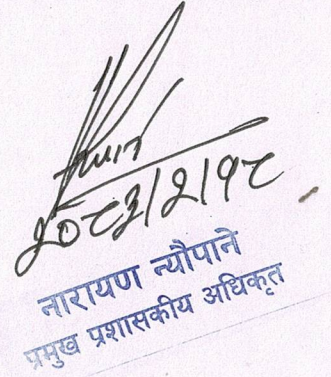 २०८३/२/१८
नारायण न्यौपाने
प्रमुख प्रशासकीय अधिकृत